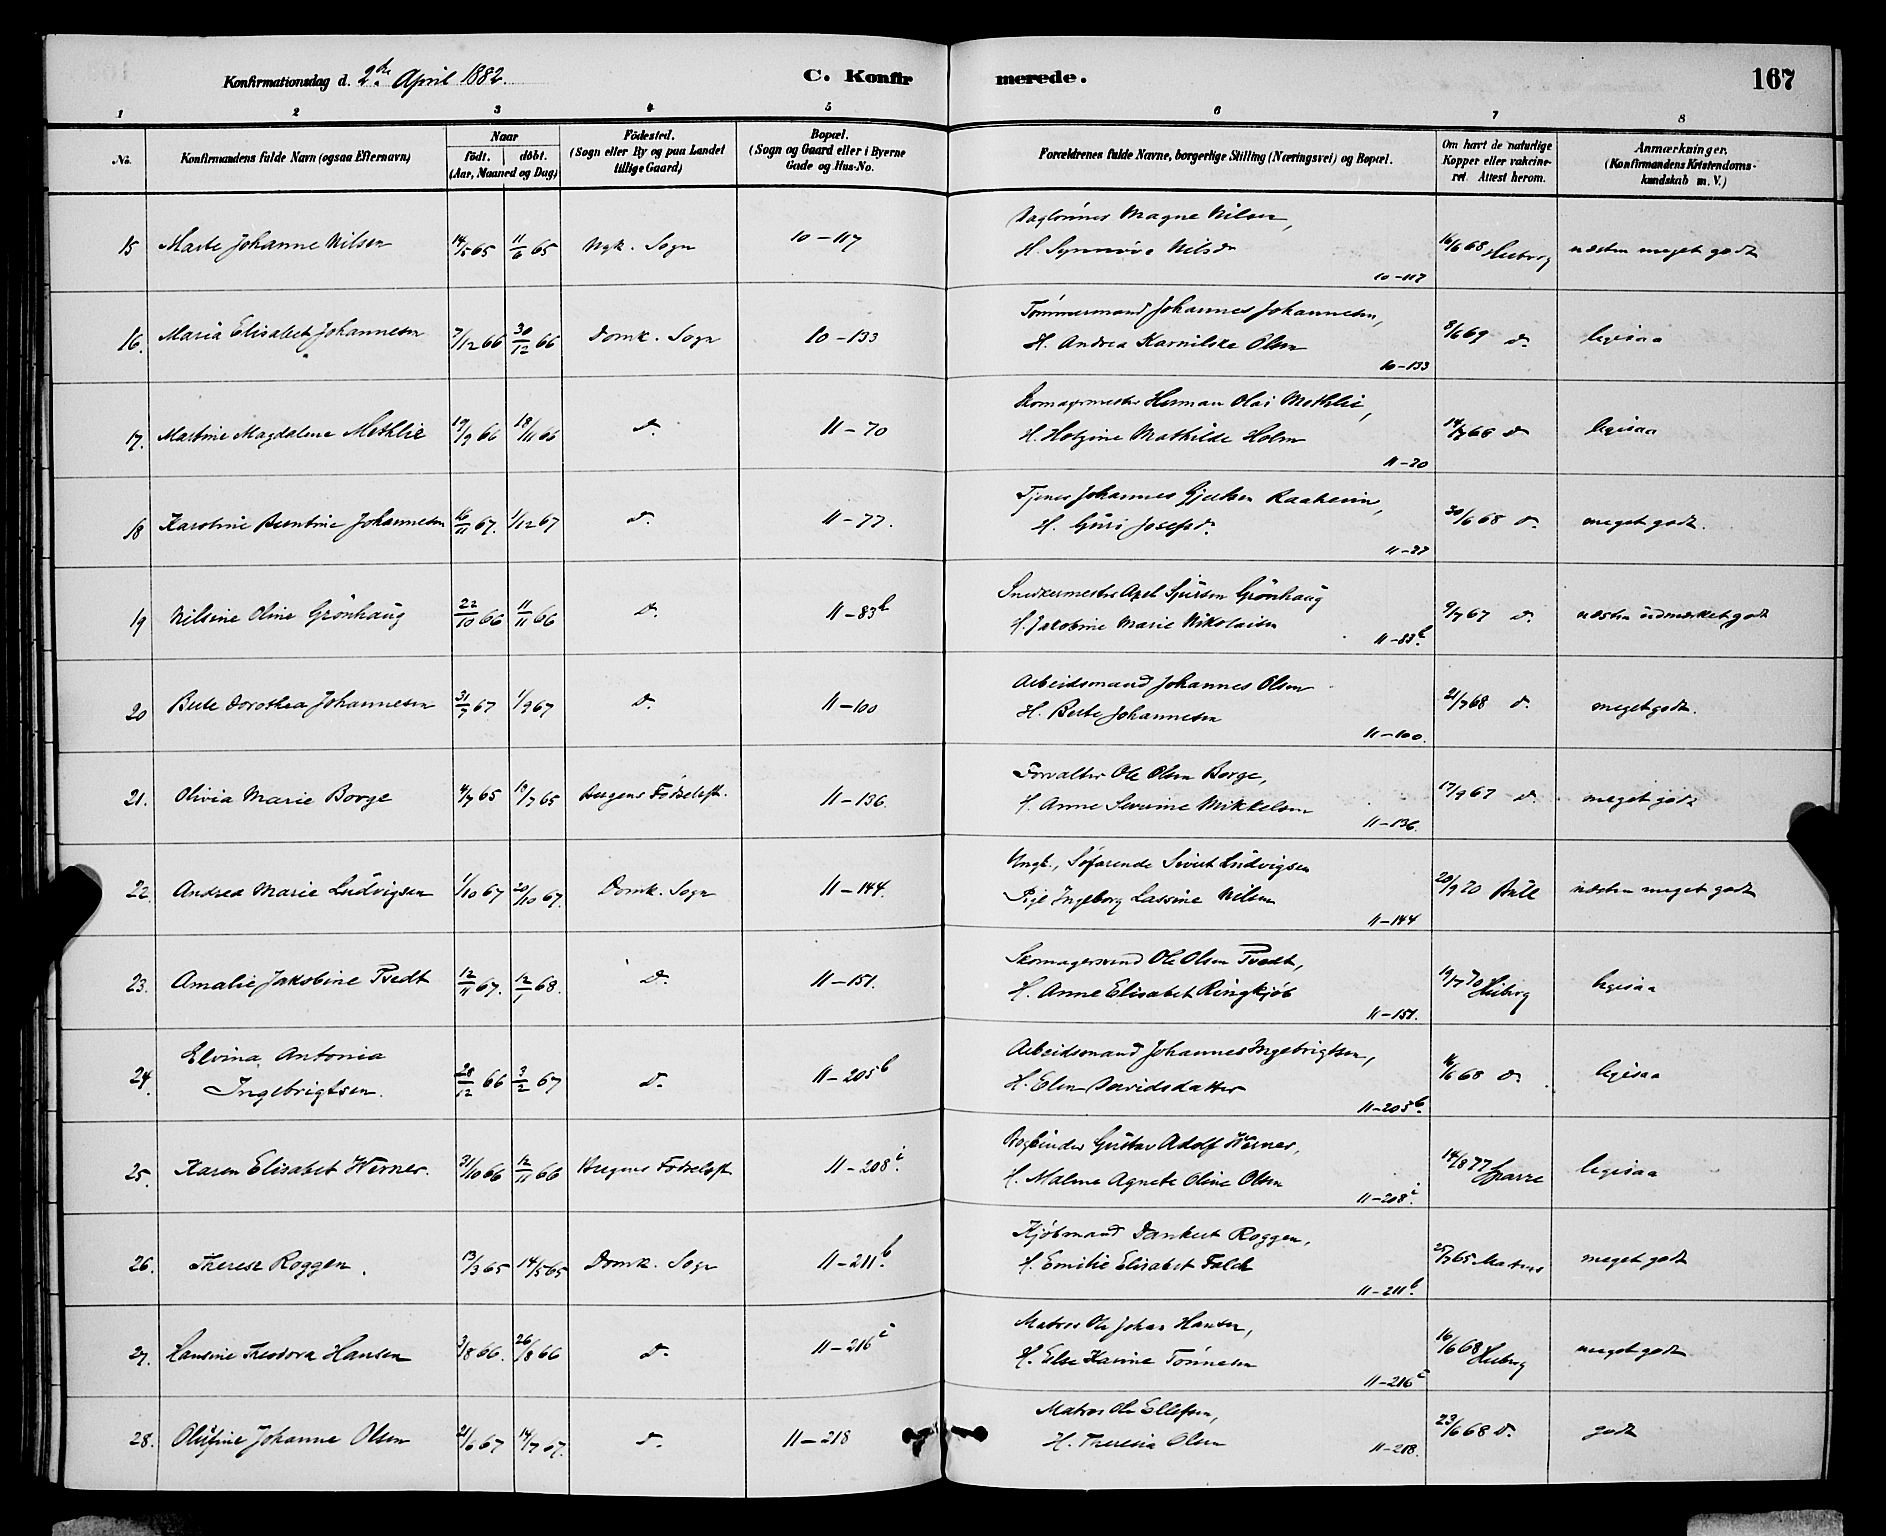 Konfirmationsdag d. 2den April 1882. C. Konfirmerede. 167
1 2 3 4 5 6 7 8
No. Konfirmandens fulde Navn (ogsaa Efternavn) Naar födt. döbt. (Aar, Maaned og Dag) Födested. (Sogn eller By og paa Landet tillige Gaard) Bopæl. (Sogn og Gaard eller i Byerne Gade og Hus-No. Forældrenes fulde Navne, borgerlige Stilling (Næringsvei) og Bopæl. Om havt de naturlige Kopper eller vakcineret. Attest herom. Anmærkninger. (Konfirmandens Kristendomskundskab m. V.)
15 Marte Johanne Nilsen 14/5 65 11/6 65 Nyk. Sogn 10-117 Magne Nilsen,
H. Synnøve Nilsdr 10-117 16/6 68 Heiberg næsten meget godt
16. Maria Elisabet Johannesen 7/12 66 30/12 66 Domk. Sogn 10-133 Tömmermand Johannes Johannesen,
H. Andrea Karnilske Olsen 10-133 8/6 69 do. ligesaa
17. Martine Magdalene Methlie 19/9 66 18/11 66 do. 11-70 Skomagermester Herman Olai Methlie,
H. Holgine Mathilde Holm 11-70 14/7 68 do ligesaa
18 Karoline Bentine Johannesen 16/11 67. 1/12 67 do. 11-77. Tjener Johannes Raaheim,
H. Guri Josefsdr. 11-77 30/6 68 do. meget godt.
19 Nilsine Oline Grönhaug 22/10 66 11/11 66 do. 11-83b Snedkermester Axel Sjursen Grönhaug
H. Jakobine Marie Nikolaisen 11-83b. 9/7 67 do. næsten udmærket godt
20 Berte Dorothea Johannesen 31/7 67 1/9 67 do. 11-100 Arbeidsmand Johannes Olsen
H. Berte Johannesen 11-100. 21/7 68 do. meget godt.
21. Olivia Marie Borge 4/7 65 10/7 65 Bergens Födselsst. 11-136. Forvalter Ole Olsen Borge,
H. Anne Severine Mikkelsen 11-136. 17/9 67 do. meget godt
22. Andrea Marie Ludvigsen 1/10 67 20/10 67. Domk. Sogn 11-144. Ungk., Söfarende Sivert Ludvigsen
Pige Ingeborg Lassine Nilsen 11-144 20/9 70 Bull næsten meget godt
23. Amalie Jakobine Tvedt 12/11 67. 12/1 68. do. 11-151. Skomagersvend Ole Olsen Tvedt,
H. Anne Elisabet Ringkjöb 11-151. 19/7 70 Heiberg ligesaa
24. Elvina Antonia
Ingebrigtsen. 28/12 66 3/2 67 do. 11-205b Arbeidsmand Johannes Ingebrigtsen,
H. Elen Davidsdatter 11-205b. 16/6 68 do. ligesaa
25. Karen Elisabet Werner. 31/10 66 12/11 66 Bergens Födselsst 11-208i. Bogbinder Gustav Adolf Werner,
H. Malene Agnete Oline Olsen 11-208i. 14/8 77 Sparre ligesaa
26. Therese Roggen. 13/3 65 14/5 65 Domk. Sogn 11-211b. Kjöbmand Dankert Roggen,
H. Emilie Elisabet Falck 11-211b. 25/7 65 meget godt
27. Hansine Theodora Hansen 3/8 66. 26/8 66 do. 11-216i Matros Ole Johan Hansen,
H. Else Karine Tönnesen 11-216i 16/6 68 Heiberg meget godt
28. Olufine Johanne Olsen 21/6 67 14/7 67. do. 11-218 Matros Ole Ellefsen,
H. Theresia Olsen 11-218. 23/6 68 do. godt